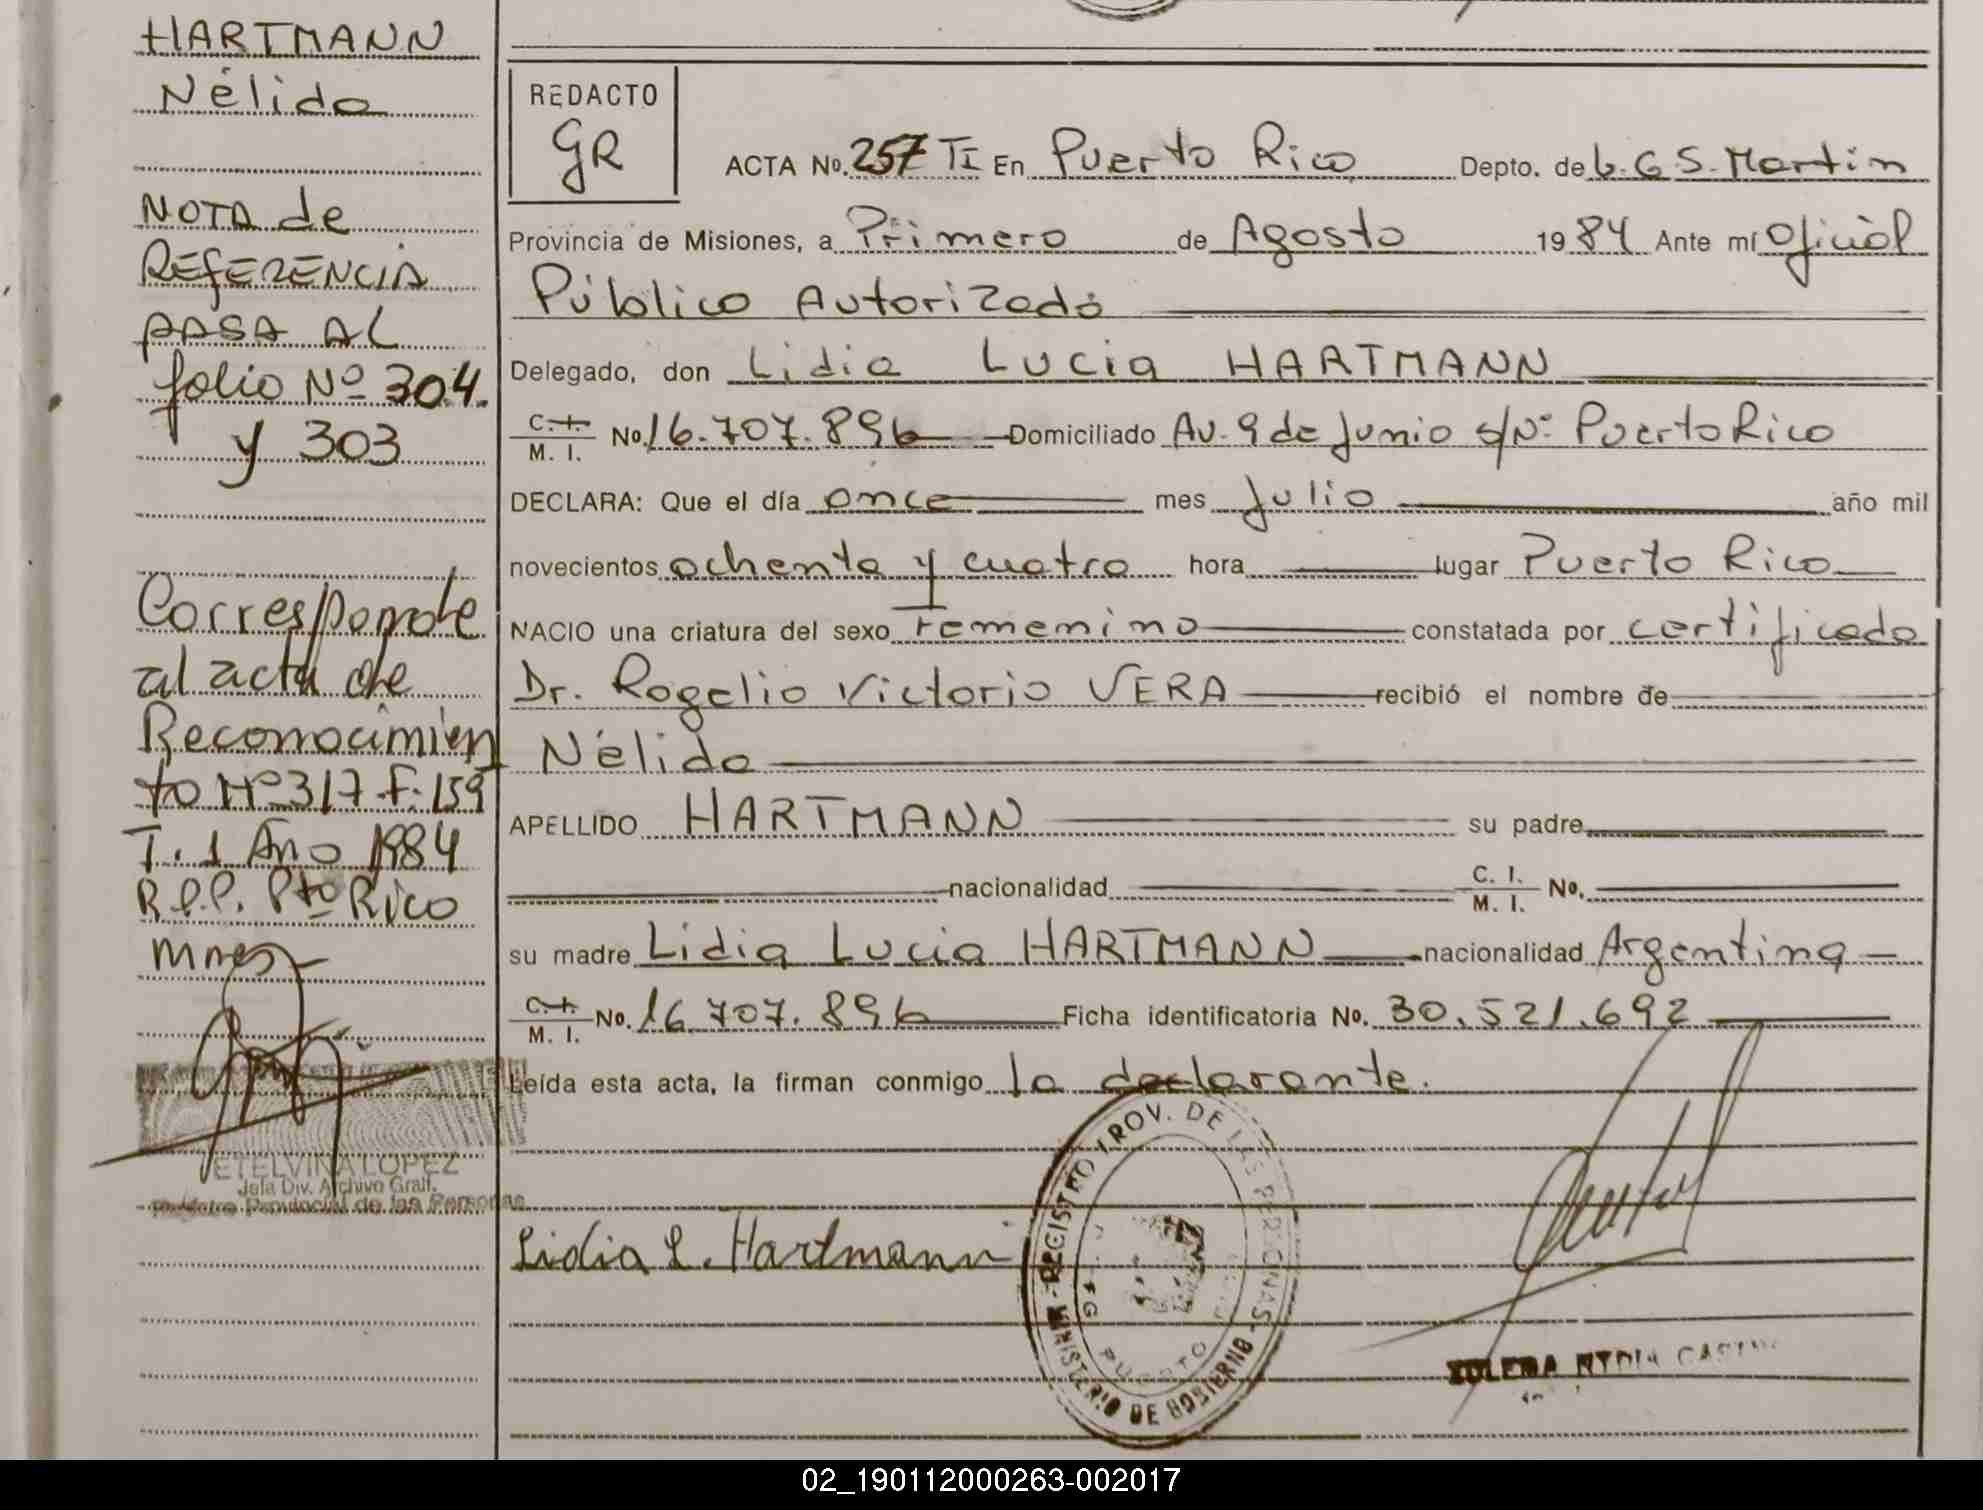 HARTMANN
Nélida
NOTA de
REFERENCIA
PASA AL
folio Nº 304.
y 303
Corresponde
al acta de
Reconocimien
to Nº 317 F. 159
T. 1 Año 1984
R.P.P. Pto Rico
Mnes
ETELVINA LOPEZ
Jefa Div. Archivo Gral.
Registro Provincial de las Personas
REDACTO
GR
ACTA No. 257 TI En Puerto Rico Depto. de L.G S. Martin
Provincia de Misiones, a Primero de Agosto 1984 Ante mí Oficial
Público Autorizado
Delegado, don Lidia Lucia HARTMANN
C. I. M. I. No. 16.707.896 Domiciliado Av. 9 de Junio s/Nº Puerto Rico
DECLARA: Que el día once mes Julio año mil
novecientos ochenta y cuatro hora lugar Puerto Rico
NACIO una criatura del sexo Femenino constatada por certificado
Dr. Rogelio Victorio VERA recibió el nombre de
Nélida
APELLIDO HARTMANN su padre
nacionalidad C. I. M. I. No.
su madre Lidia Lucia HARTMANN nacionalidad Argentina
C. I. M. I. No. 16.707.896 Ficha identificatoria No. 30.521.692
Leída esta acta, la firman conmigo la declarante.
Lidia L. Hartmann
REGISTRO PROV. DE LAS PERSONAS - MINISTERIO DE GOBIERNO -
PUERTO
02_190112000263-002017